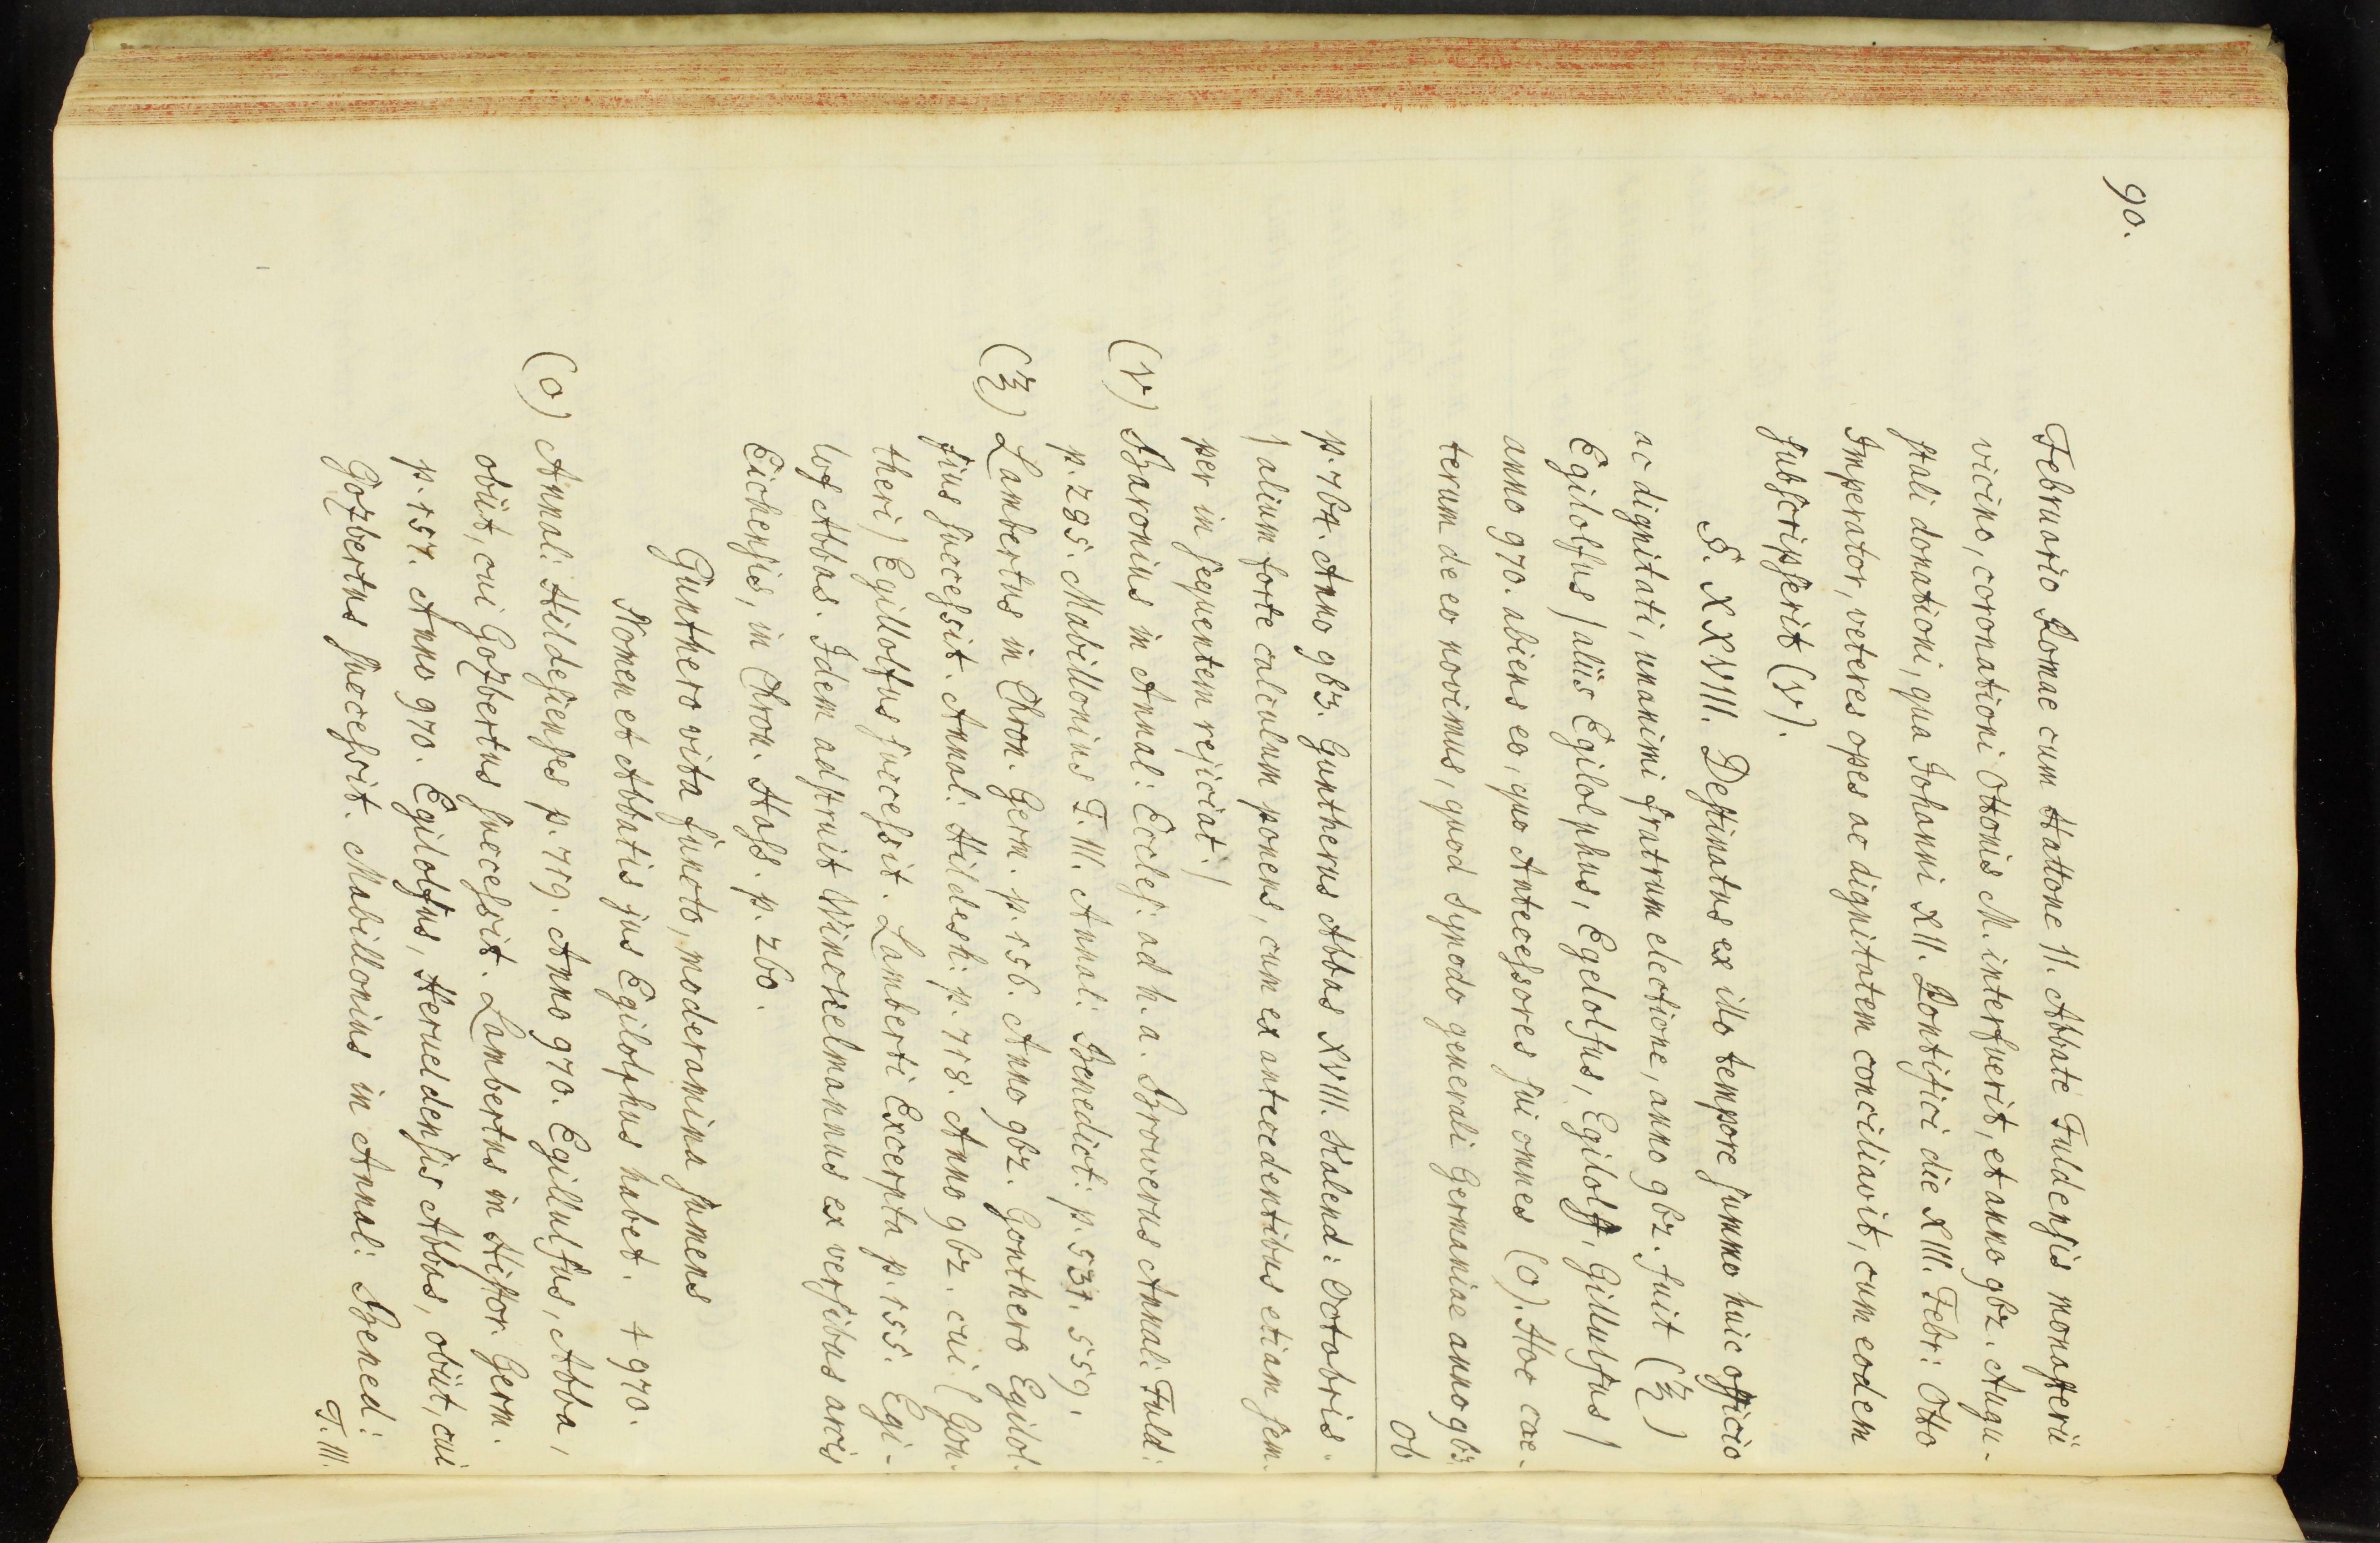 90.
Februario Romae cum Hattone II. Abbate Fuldensis monasterii
vicino, coronationi Ottonis M. interfuerit, et anno 962. Augu-
stali donationi, qua Johanni XII. Pontifici die XIII. Febr: Otto
Imperator, veteres opes ac dignitatem conciliavit, cum eodem
subscripserit (ν).
§. XXVIII. Destinatus ex illo tempore summo huic officio
ac dignitati, unanimi fratrum electione, anno 962. fuit (ξ)
Egilolfus / aliis Egilolphus, Egelolfus, Egilolf, Gillulfus /
anno 970. abiens eo, quo Antecessores sui omnes (ο). Hoc cae-
terum de eo novimus, quod Synodo generali Germaniae anno 963
Ob
p. 764. Anno 963. Guntherus Abbas XVIII. Kalend: Octobris.
/ alium forte calculum ponens, cum ex antecedentibus etiam sem-
per in sequentem rejiciat. /
(ν) Baronius in Annal: Eccles: ad h. a. Browerus Annal: Fuld:
p. 295. Mabillonius T. III. Annal: Benedict: p. 531. 559.
(ξ) Lambertus in Chron. Germ. p. 156. Anno 962. Gonthero Egilol-
fus successit. Annal: Hildesh: p. 718. Anno 962. cui (Gon-
theri) Egillolfus successit. Lamberti Excerpta p. 155. Egi-
lof Abbas. Idem adstruit Winckelmannus ex versibus arcis
Eichensis, in Chron. Hass. p. 260.
Gunthero vita functo, moderamina sumens
Nomen et Abbatis jus Egilolphus habet. † 970.
(ο) Annal: Hildesienses p. 719. Anno 970. Egillulfus, Abba,
obiit, cui Gozbertus successit. Lambertus in Histor. Germ.
p. 157. Anno 970. Egilolfus, Herueldensis Abbas, obiit, cui
Gozbertus successit. Mabillonius in Annal: Bened:
T. III.